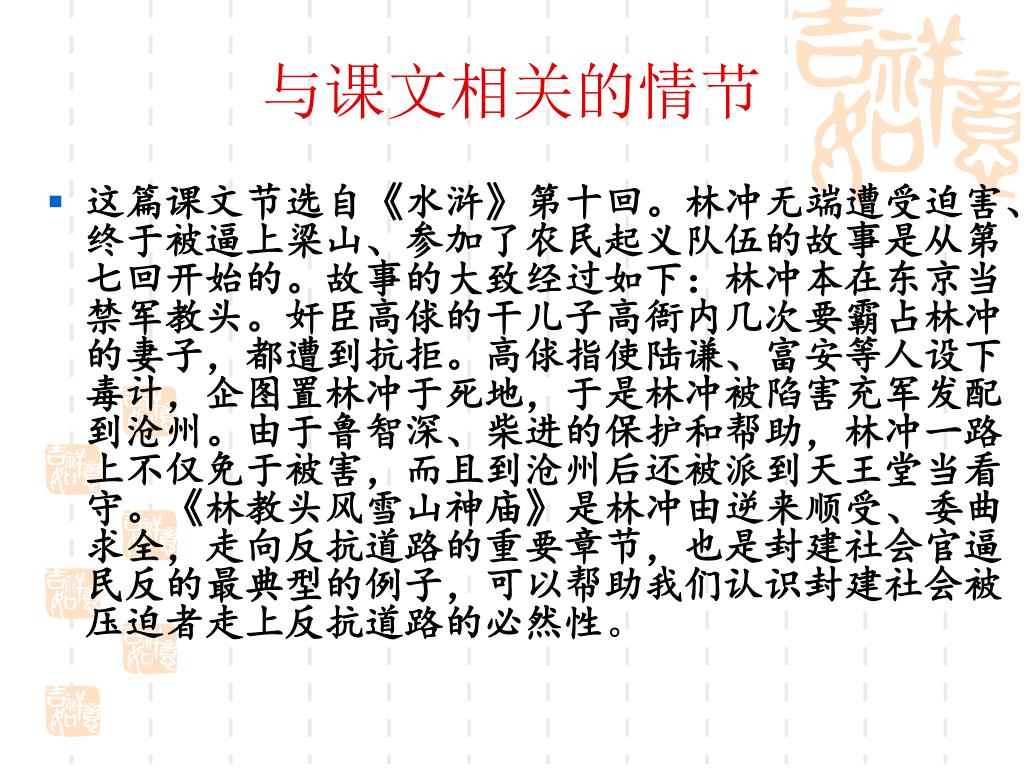 吉祥
如意
与课文相关的情节
这篇课文节选自《水浒》第十回。林冲无端遭受迫害、
终于被逼上梁山、参加了农民起义队伍的故事是从第
七回开始的。故事的大致经过如下：林冲本在东京当
禁军教头。奸臣高俅的干儿子高衙内几次要霸占林冲
的妻子，都遭到抗拒。高俅指使陆谦、富安等人设下
毒计，企图置林冲于死地，于是林冲被陷害充军发配
到沧州。由于鲁智深、柴进的保护和帮助，林冲一路
上不仅免于被害，而且到沧州后还被派到天王堂当看
守。《林教头风雪山神庙》是林冲由逆来顺受、委曲
求全，走向反抗道路的重要章节，也是封建社会官逼
民反的最典型的例子，可以帮助我们认识封建社会被
压迫者走上反抗道路的必然性。
吉祥
如意
吉祥
如意
吉祥
如意
吉祥
如意
吉祥
如意
吉祥
如意